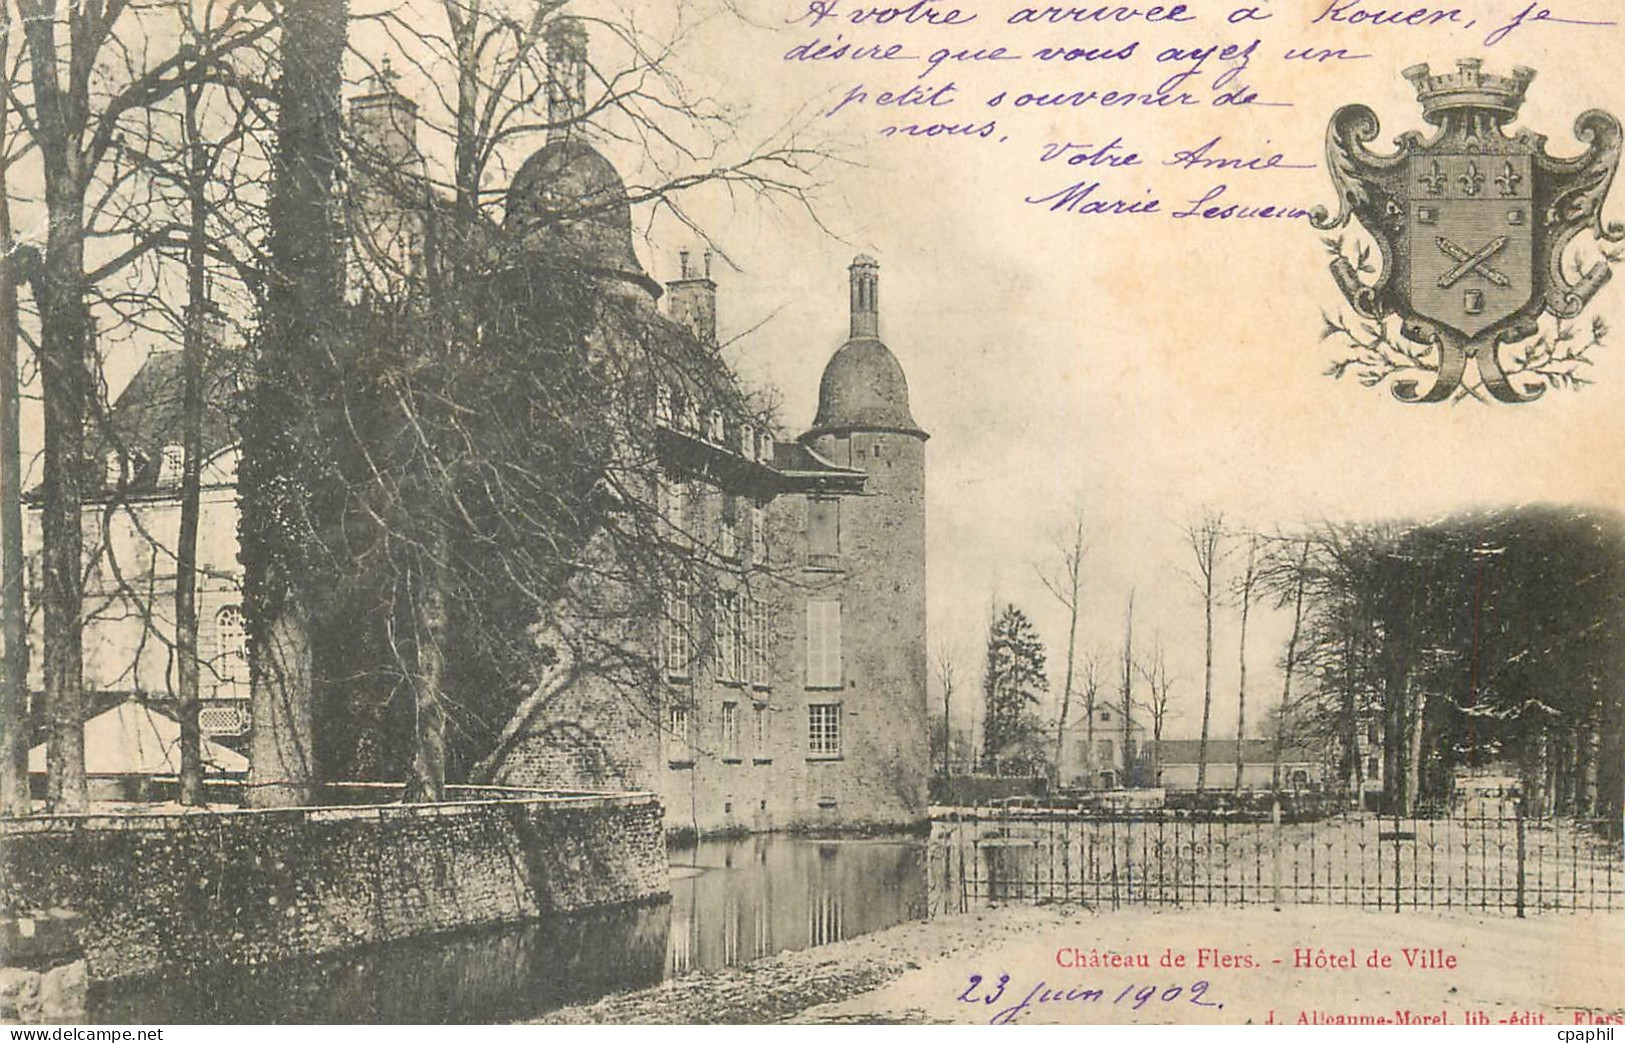 A votre arrivée à Rouen, je
désire que vous ayez un
petit souvenir de
nous,
Votre Amie
Marie Lesueur
Château de Flers. - Hôtel de Ville
23 juin 1902.
J. Alleaume-Morel, lib.-édit., Flers
cpaphil